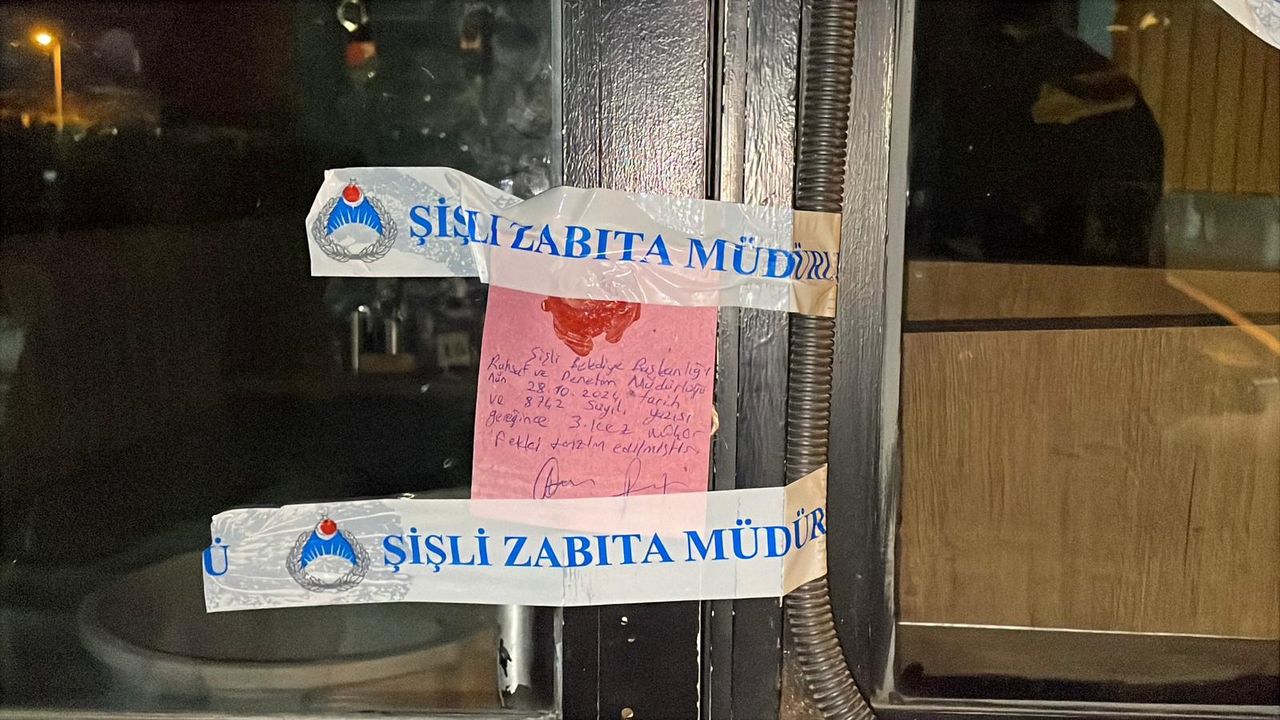 ŞİŞLİ ZABITA MÜDÜRL
Şişli Belediye Başkanlığı
Ruhsat ve Denetim Müdürlüğü
nün 28.10.2024 tarih
ve 8742 Sayılı yazısı
gereğince 3. kez mühür
Fekki tanzim edilmiştir.
Ü ŞİŞLİ ZABITA MÜDÜR